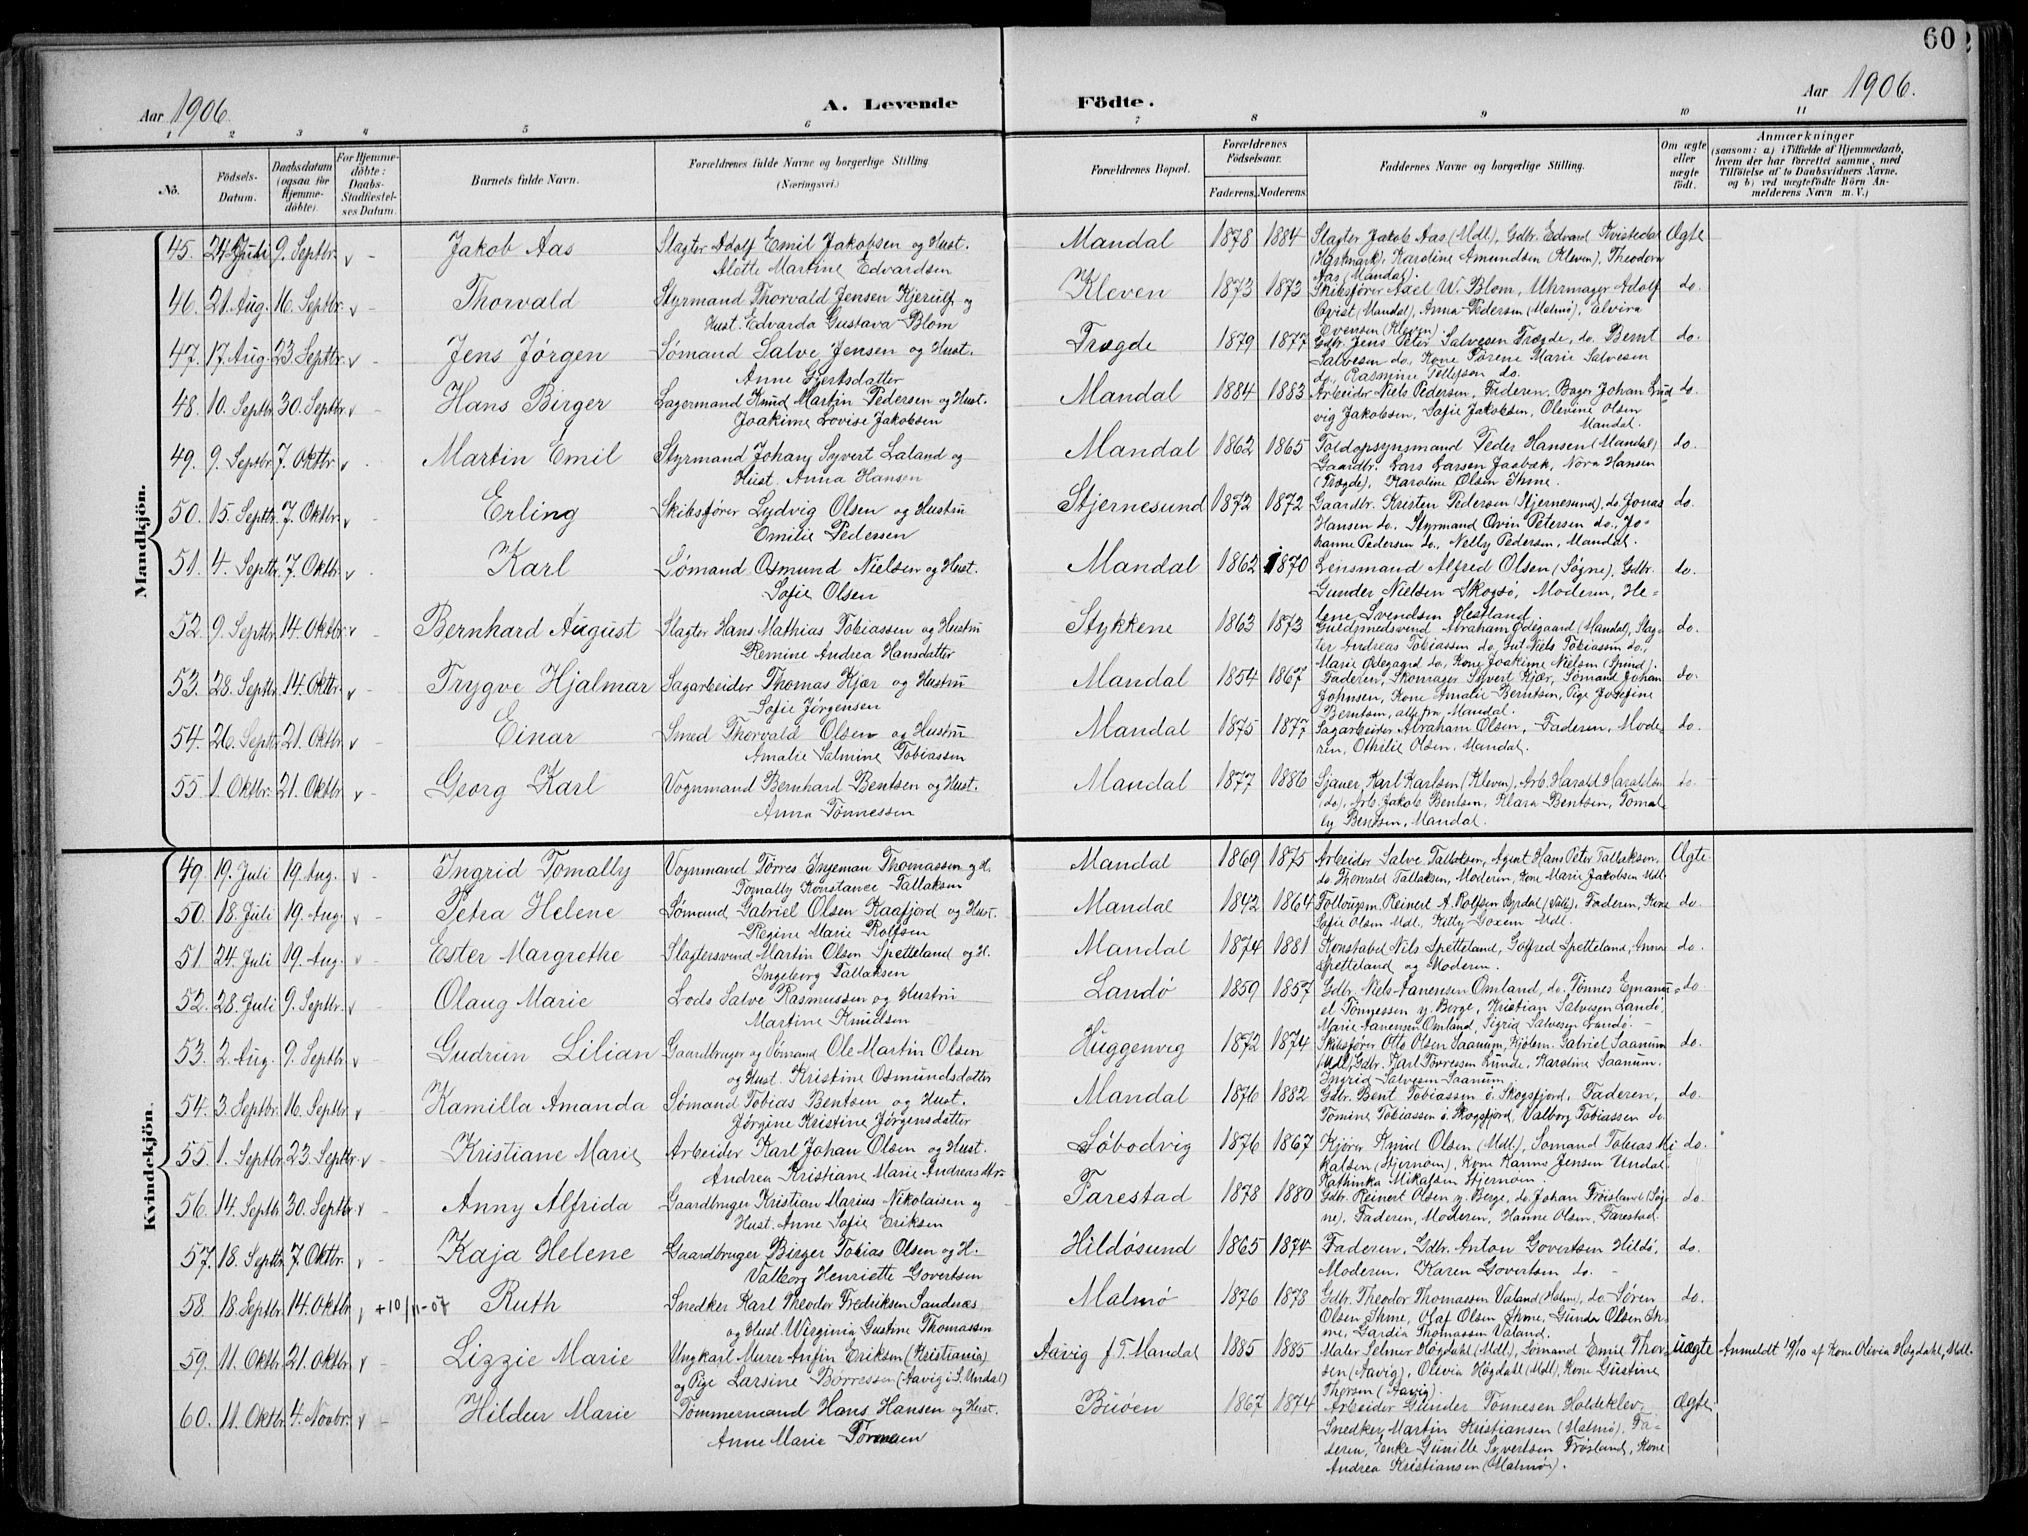 60
Aar 1906.
A. Levende Födte.
Aar 1906.
1 2 3 4 5 6 7 8 9 10 11
No. Födsels-Datum. Daabsdatum (ogsaa for Hjemme-döbte). For Hjemme-döbte: Daabs-Stadfæstel-ses Datum. Barnets fulde Navn. Forældrenes fulde Navne og borgerlige Stilling (Næringsvei.) Forældrenes Bopæl. Forældrenes Födselsaar. Faderens. Moderens. Faddernes Navne og borgerlige Stilling. Om ægte eller uægte födt. Anmærkninger (saasom: a) i Tilfælde af Hjemmedaab, hvem der har forrettet samme, med Tilföielse af to Daabsvidners Navne, og b) ved uægtefödte Börn An-melderens Navn m. V.)
Mandkjön.
45. 24 Juli 9. Septbr. v - Jakob Aas Slagter Adolf Emil Jakobsen og Hust. Mandal 1878 1884 Slagter Jakob Aas (Mdl), Gdbr. Edvard Kvistedal Ægte
Alette Martine Edvardsen (Hartmark), Karoline Amundsen (Kleven), Theodora
Aas (Mandal).
46. 21. Aug. 16. Septbr. v - Thorvald Styrmand Thorvald Jensen Kjerulf og Kleven 1873 1873 Skibsfører Axel W. Blom, Uhrmager Adolf do.
Hust. Edvarda Gustava Blom Qvist (Mandal), Anna Pedersen (Malmø), Elvira
Evensen (Kleven).
47. 17. Aug. 23. Septbr. v - Jens Jørgen Sømand Salve Jensen og Hust. Trægde 1879 1877 Gdbr. Jens Peter Salvesen Trægde, do. Bernt do.
Anne Gjertsdatter Salvesen do, Kone Tørene Marie Salvesen
do., Rasmine Tellefsen do.
48. 10. Septbr. 30. Septbr. v - Hans Birger Lagermand Knud Martin Pedersen og Hust. Mandal 1884 1883 Arbeider Niels Pedersen, Faderen, Bager Johan Lud do.
Joakime Lovise Jakobsen vig Jakobsen, Sofie Jakobsen, Olevine Olsen
Mandal.
49. 9. Septbr. 7. Oktbr. v - Martin Emil Styrmand Johany Syvert Laland og Mandal 1862 1865 Toldopsynsmand Peder Hansen (Mandal) do.
Hust. Anna Hansen Gaardbr. Lars Larsen Jaabæk, Nora Hansen
(Trægde), Karoline Olsen Ihme.
50. 15. Septbr. 7. Oktbr. v - Erling Skibsfører Lydvig Olsen og Hustru Stjernesund 1872 1872 Gaardbr. Kristen Pedersen (Stjernesund), do. Jonas do.
Emilie Pedersen Hansen do. Styrmand Qvin Petersen do., Jo-
hanne Pedersen do., Nelly Pedersen, Mandal.
51. 4. Septbr. 7. Oktbr. v - Karl Sømand Osmund Nielsen og Hust. Mandal 1862 1870 Lensmand Alfred Olsen (Søgne), Gdbr. do.
Sofie Olsen Gunder Nielsen Skogsø, Moderen, He-
lene Svendsen Hestland
52. 9. Septbr. 14. Oktbr. v - Bernhard August Slagter Hans Mathias Tobiassen og Hustru Stykkene 1863 1873 Guldsmedsvend Abraham Ødegaard (Mandal), Slag- do.
Remine Andrea Hansdatter ter Andreas Tobiassen do, Gut Niels Tobiassen do.,
Marie Ødegaard do, Kone Joakime Nielsen (Spind).
53. 28. Septbr. 14. Oktbr. v - Trygve Hjalmar Sagarbeider Thomas Kjær og Hustru Mandal 1854 1867 Faderen, Skomager Syvert Kjær, Sømand Johan do.
Sofie Jørgensen Johnsen, Kone Amalie Berntsen, Pige Josefine
Berntsen, alle fra Mandal.
54. 26. Septbr. 21. Oktbr. v - Einar Smed Thorvald Olsen og Hustru Mandal 1875 1877 Sagarbeider Abraham Olsen, Faderen, Mode- do.
Amalie Salmine Tobiassen ren, Othilie Olsen, Mandal.
55 1. Oktbr. 21. Oktbr. v - Georg Karl Vognmand Bernhard Bentsen og Hust. Mandal 1877 1886 Sjauer Karl Karlsen (Kleven), Arb. Harald Haraldsen do.
Anna Tønnessen (do), Arb. Jakob Bentsen, Klara Bentsen, Tomal-
ly Bentsen, Mandal.
Kvindekjön.
49 19. Juli 19. Aug. v - Ingrid Tomally Vognmand Tørres Ingeman Thomassen og H. Mandal 1869 1875 Arbeider Salve Tallaksen, Agent Hans Peter Tallaksen, Ægte
Tomally Konstance Tallaksen do Thorvald Tallaksen, Moderen, Kone Marie Jakobsen Mdl.
50. 18. Juli 19. Aug. v - Petra Helene Sømand Gabriel Olsen Kaafjord og Hust. Mandal 1842 1864 Reinert A. Rolfsen Faderen, Kone do.
Regine Marie Rolfsen Sofie Olsen Mdl, Kitty Goxem Mdl.
51. 24. Juli 19. Aug. v - Ester Margrethe Slagtersvend Martin Olsen Spetteland og H. Mandal 1874 1881 Konstabel Nils Spetteland, Gotfred Spetteland, Anna do.
Ingeborg Tallaksen Spetteland og Moderen.
52. 28. Juli 9. Septbr. v - Olaug Marie Lods Salve Rasmussen og Hustru Landø 1859 1857 Gdbr. Niels Aanensen Omland, do. Tønnes Emanu- do
Martine Knudsen el Tønnessen y. Berge, Kristian Salvesen Landø,
Marie Aanensen Omland, Sigrid Salvesen Landø.
53. 2. Aug. 9. Septbr. v - Gudrun Lilian Gaardbruger og Sømand Ole Martin Olsen Huggenvig 1872 1874 Skibsfører Otto Olsen Saanum, Gabriel Saanum do.
og Hust. Kristine Osmundsdatter (Mdl), Gdbr. Karl Tørressen Lunde, Karoline Saanum.
Ingrid Salvesen Saanum.
54. 3. Septbr. 16. Septbr. v - Kamilla Amanda Sømand Tobias Bentsen og Hust. Mandal 1876 1882 Gdbr. Bent Tobiassen i. Skogsfjord, Faderen, do.
Jørgine Kristine Jørgensdatter Tomine Tobiassen i. Skogsfjord, Valborg Tobiassen do
55. 1. Septbr. 23. Septbr. v - Kristiane Marie Arbeider Karl Johan Olsen og Hust. Søbodvig 1876 1867 Kjører Knud Olsen (Mdl), Sømand Tobias Mi do.
Andrea Kristiane Marie Andreasdtr. kalsen (Hjernøen), Kone Hanne Jensen Undal,
Kathinka Mikalsen Hjernøen.
56. 14. Septbr. 30. Septbr. v - Anny Alfrida Gaardbruger Kristian Marius Nikolaisen og Farestad 1878 1880 Gdbr. Reinert Olsen y. Berge, do. Johan Frøisland (Søg- do.
Hust. Anne Sofie Eriksen ne), Faderen, Moderen, Hanne Olsen, Farestad.
57. 18. Septbr. 7. Oktbr. v - Kaja Helene Gaardbruger Birger Tobias Olsen og H. Hildøsund 1865 1874 Faderen, Gdbr. Anton Govertsen Hildø, do.
Valborg Henriette Govertsen Moderen. Karen Govertsen do.
58. 18. Septbr. 14. Oktbr. v +10/11-07 Ruth Snedker Karl Theodor Fredriksen Sandnæs Malmø 1876 1878 Gdbr. Theodor Thomassen Valand (Holm), do. Søren do.
og Hust. Wirginia Gustine Thomassen Olsen Ihme, Olaf Olsen Ihme, Gunda Olsen Ih-
me, Gardia Thomassen Valand.
59. 11. Oktbr. 21. Oktbr. v - Lizzie Marie Ungkarl Murer Anfin Eriksen (Kristiania) Aavig f. T. Mandal 1885 1885 Maler Selmer Høgdahl (Mdl), Sømand Emil Thor- uægte Anmeldt 19/10 af Kone Olivia Høgdahl, Mdl.
og Pige Larsine Børressen (Aavig i S. Undal) sen (Aavig), Olivia Høgdahl (Mdl), Kone Gustine
Thorsen (Aavig).
60. 11. Oktbr. 4. Novbr. v - Hildur Marie Tømmermand Hans Hansen og Hust. Buøen 1867 1874 Arbeider Gunder Tønnesen Holdeklev Ægte
Anne Marie Snedker Martin Kristiansen (Malmø), Fa-
deren, Enke Gunille Syvertsen Frøsland, Kone
Andrea Kristiansen (Malmø).